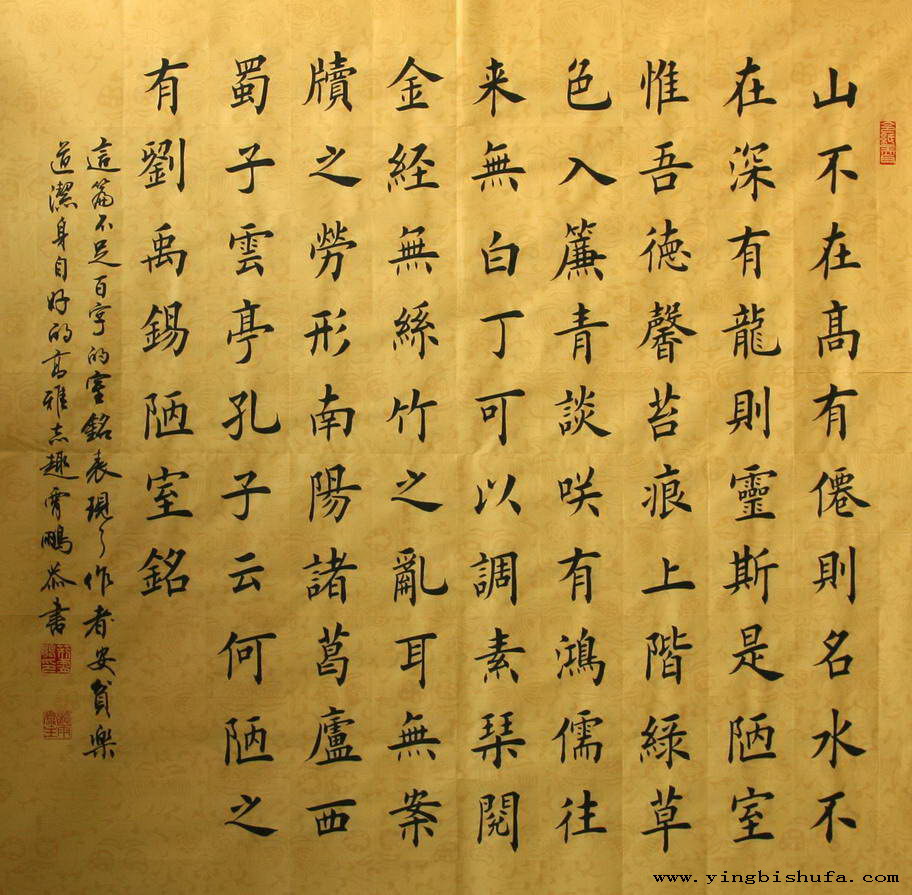 山不在高有僊則名水不
在深有龍則靈斯是陋室
惟吾德馨苔痕上階緑草
色入簾青談咲有鴻儒往
来無白丁可以調素琹閱
金経無絲竹之亂耳無案
牘之勞形南陽諸葛廬西
蜀子雲亭孔子云何陋之
有劉禹錫陋室銘
這篇不足百字的室銘表現了作者安貧樂
道潔身自好的高雅志趣雪鵬恭書
www.yingbishufa.com